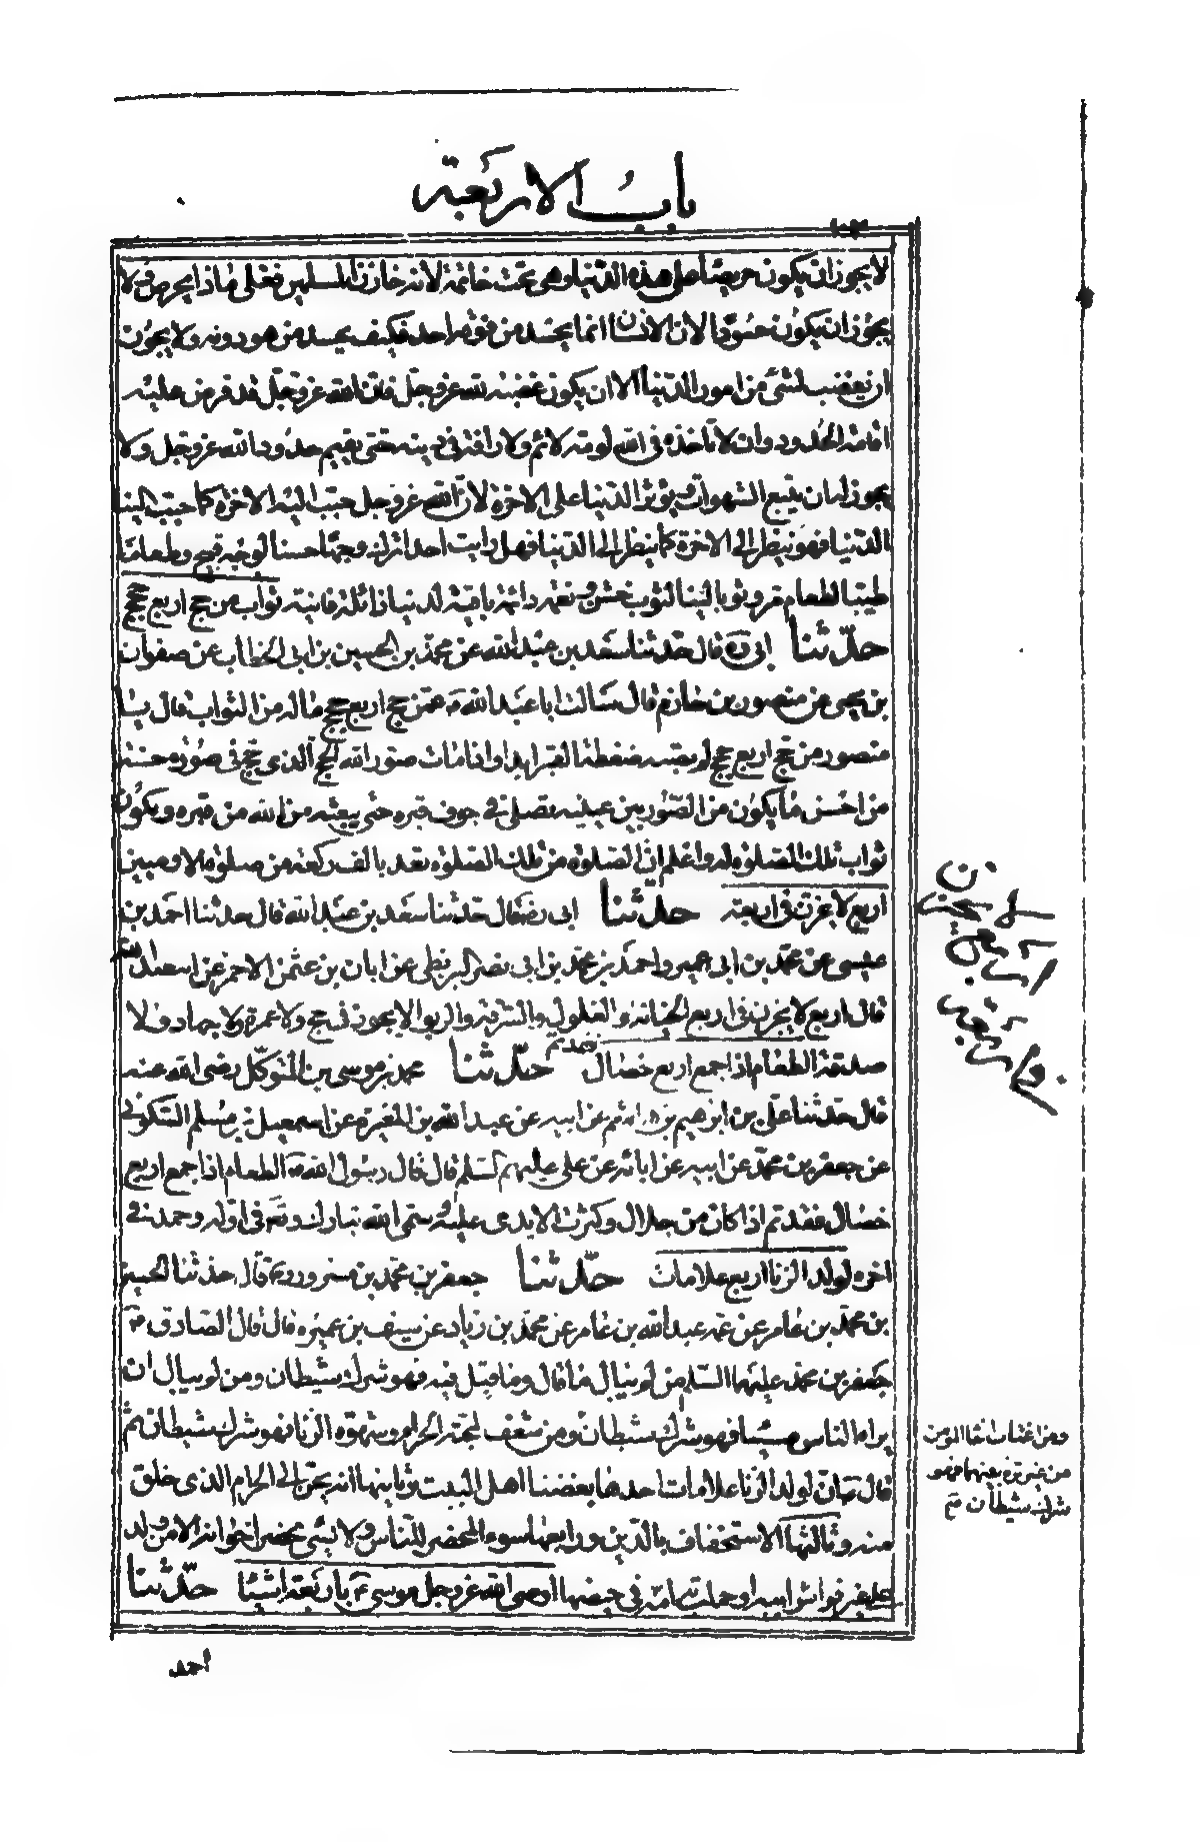 باب الاربعة
لا يجوز ان يكون حريصا على هذه الدنيا وهى تحت خاتمه لانه خازن المسلمين فعلى ماذا يحرص ولا
يجوز ان يكون حسودا لان الانسان انما يحسد من فوقه احد فكيف يحسد من هو دونه ولا يجوز
ان يغضب لشئ من امور الدنيا الا ان يكون غضبه لله عز وجل فان الله عز وجل قد فرض عليه
اقامة الحدود وان لا تاخذه فى الله لومة لائم ولا رافة فى دينه حتى يقيم حدود الله عز وجل ولا
يجوز له ان يتبع الشهوات ويؤثر الدنيا على الاخرة لان الله عز وجل حبب اليه الاخرة كما حبب الينا
الدنيا فهو ينظر الى الاخرة كما ينظر الى الدنيا فهل رايت احدا ترك وجها حسنا لوجه قبيح وطعاما
طيبا لطعام مر وثوبا لينا لثوب خشن ونعمة دائمة باقية لدنيا زائلة فانية ثواب من حج اربع حجج
حدثنا ابى ره قال حدثنا سعد بن عبد الله عن محمد بن الحسين بن ابى الخطاب عن صفوان
بن يحيى عن منصور بن حازم قال سالت ابا عبد الله ع عمن حج اربع حجج ما له من الثواب قال يا
منصور من حج اربع حجج لم يصبه ضغطة القبر ابدا واذا مات صور الله الحج الذى حج فى صورة حسنة
من احسن ما يكون من الصور بين عينيه تصلى فى جوف قبره حتى يبعثه من الله من قبره ويكون
ثواب تلك الصلوة له واعلم ان الصلوة من تلك الصلوة تعدل الف ركعة من صلوة الادميين
اربع لا يجزن فى اربعة حدثنا ابى رض قال حدثنا سعد بن عبد الله قال حدثنا احمد بن
عيسى عن محمد بن ابى عمير واحمد بن محمد بن ابى نصر البزنطى عن ابان بن عثمن الاحمر عن ابى عبد الله
قال اربع لا يجزن فى اربع الخيانة والغلول والسرقة والربوا لا يجوز فى حج ولا عمرة ولا جهاد ولا
صدقة الطعام اذا جمع اربع خصال فقد تم حدثنا محمد بن موسى بن المتوكل رضى الله عنه
قال حدثنا على بن ابرهيم بن هاشم عن ابيه عن عبد الله بن المغيرة عن اسمعيل بن مسلم السكونى
عن جعفر بن محمد عن ابيه عن ابائه عن على عليهم السلم قال قال رسول الله ص الطعام اذا جمع اربع
خصال فقد تم اذا كان من حلال وكثرت الايدى عليه وسمى الله تبارك وتع فى اوله وحمد فى
اخره لولد الزنا اربع علامات حدثنا جعفر بن محمد بن مسرور ره قال حدثنا الحسين
بن محمد بن عامر عن عمه عبد الله بن عامر عن محمد بن زياد عن سيف بن عميرة قال قال الصادق ع
جعفر بن محمد عليهما السلم من لم يبال ما قال وما قيل فيه فهو شرك شيطان ومن لم يبال ان
يراه الناس مسيئا فهو شرك شيطان ومن شغف لمحبة الحرام وشهوة الزنا فهو شرك شيطان ثم
قال ع ان لولد الزنا علامات احدها بغضنا اهل البيت وثانيها انه يحن الى الحرام الذى خلق
منه وثالثها الاستخفاف بالدين ورابعها سوء المحضر للناس ولا يسئ محضر اخوانه الا من ولد
على غير فراش ابيه او حملت به امه فى حيضها اوصى الله عز وجل موسى ع باربعة اشياء حدثنا
احمد
اربع لا يجزن
فى اربعة
ومن اغتاب اخاه المومن
من غير ترة بينهما فهو
شرك شيطان